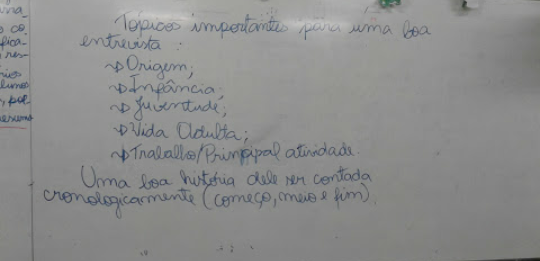 Tópicos importantes para uma boa
entrevista:
→Origem;
→Infância;
→Juventude;
→Vida Adulta;
→Trabalho/Principal atividade.
Uma boa história deve ser contada
cronologicamente (começo, meio e fim).